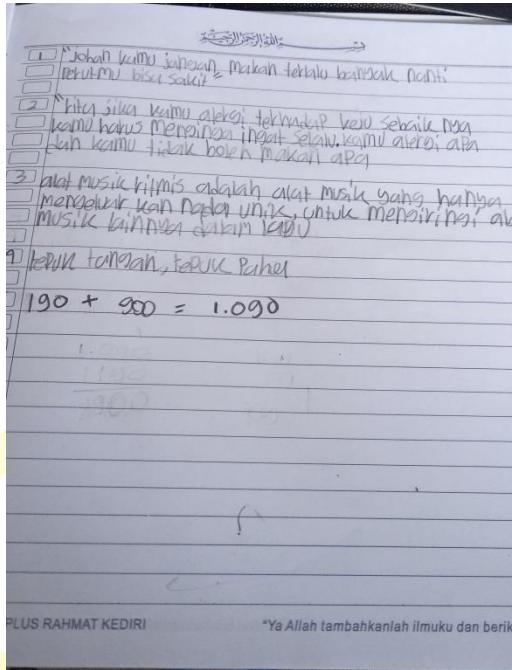 1 "Johan kamu jangan makan terlalu banyak nanti
perutmu bisa sakit"
2 "Rita jika kamu alergi terhadap keju sebaik nya
kamu harus mengingat ingat selalu. kamu alergi apa
dan kamu tidak boleh makan apa
3 alat musik ritmis adalah alat musik yang hanya
mengeluar kan nada unik, untuk mengiringi al
musik lainnya dalam lagu
4 tepuk tangan, tepuk Paha
190 + 900 = 1.090
PLUS RAHMAT KEDIRI "Ya Allah tambahkanlah ilmuku dan berik